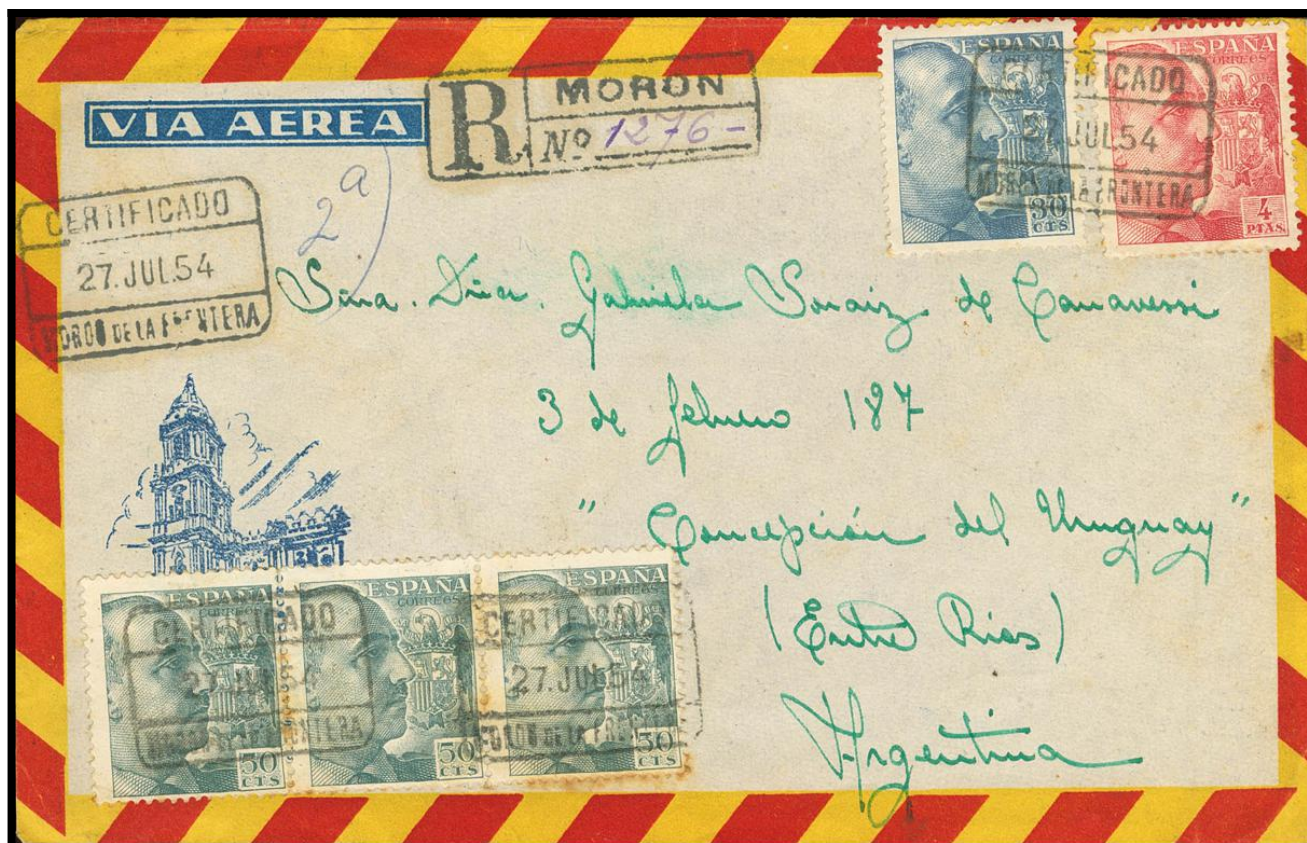 VIA AEREA
R
MORON
Nº 1276-
2ª)
ESPAÑA
CORREOS
30
CTS
ESPAÑA
CORREOS
4
PTAS.
CERTIFICADO
27.JUL.54
MORON DE LA FRONTERA
CERTIFICADO
27.JUL.54
MORON DE LA FRONTERA
Sra. Dña. Gabriela de
3 de febrero 187
"Concepción del Uruguay"
(Entre Rios)
Argentina
ESPAÑA
CORREOS
50
CTS
ESPAÑA
CORREOS
50
CTS
ESPAÑA
CORREOS
50
CTS
CERTIFICADO
27.JUL.54
MORON DE LA FRONTERA
CERTIFICADO
27.JUL.54
MORON DE LA FRONTERA